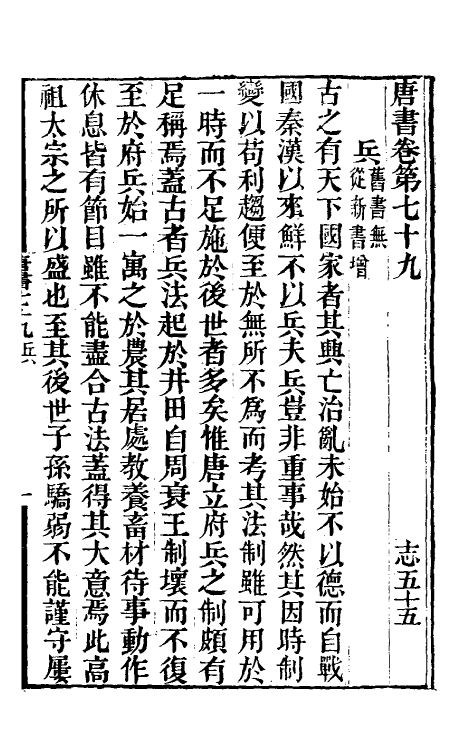 唐書卷第七十九 志五十五
兵 舊書無從新書增
古之有天下國家者其興亡治亂未始不以德而自戰
國秦漢以來鮮不以兵夫兵豈非重事哉然其因時制
變以苟利趨便至於無所不爲而考其法制雖可用於
一時而不足施於後世者多矣惟唐立府兵之制頗有
足稱焉蓋古者兵法起於井田自周衰王制壞而不復
至於府兵始一寓之於農其居處教養畜材待事動作
休息皆有節目雖不能盡合古法蓋得其大意焉此高
祖太宗之所以盛也至其後世子孫驕弱不能謹守屢
唐書七十九兵 一